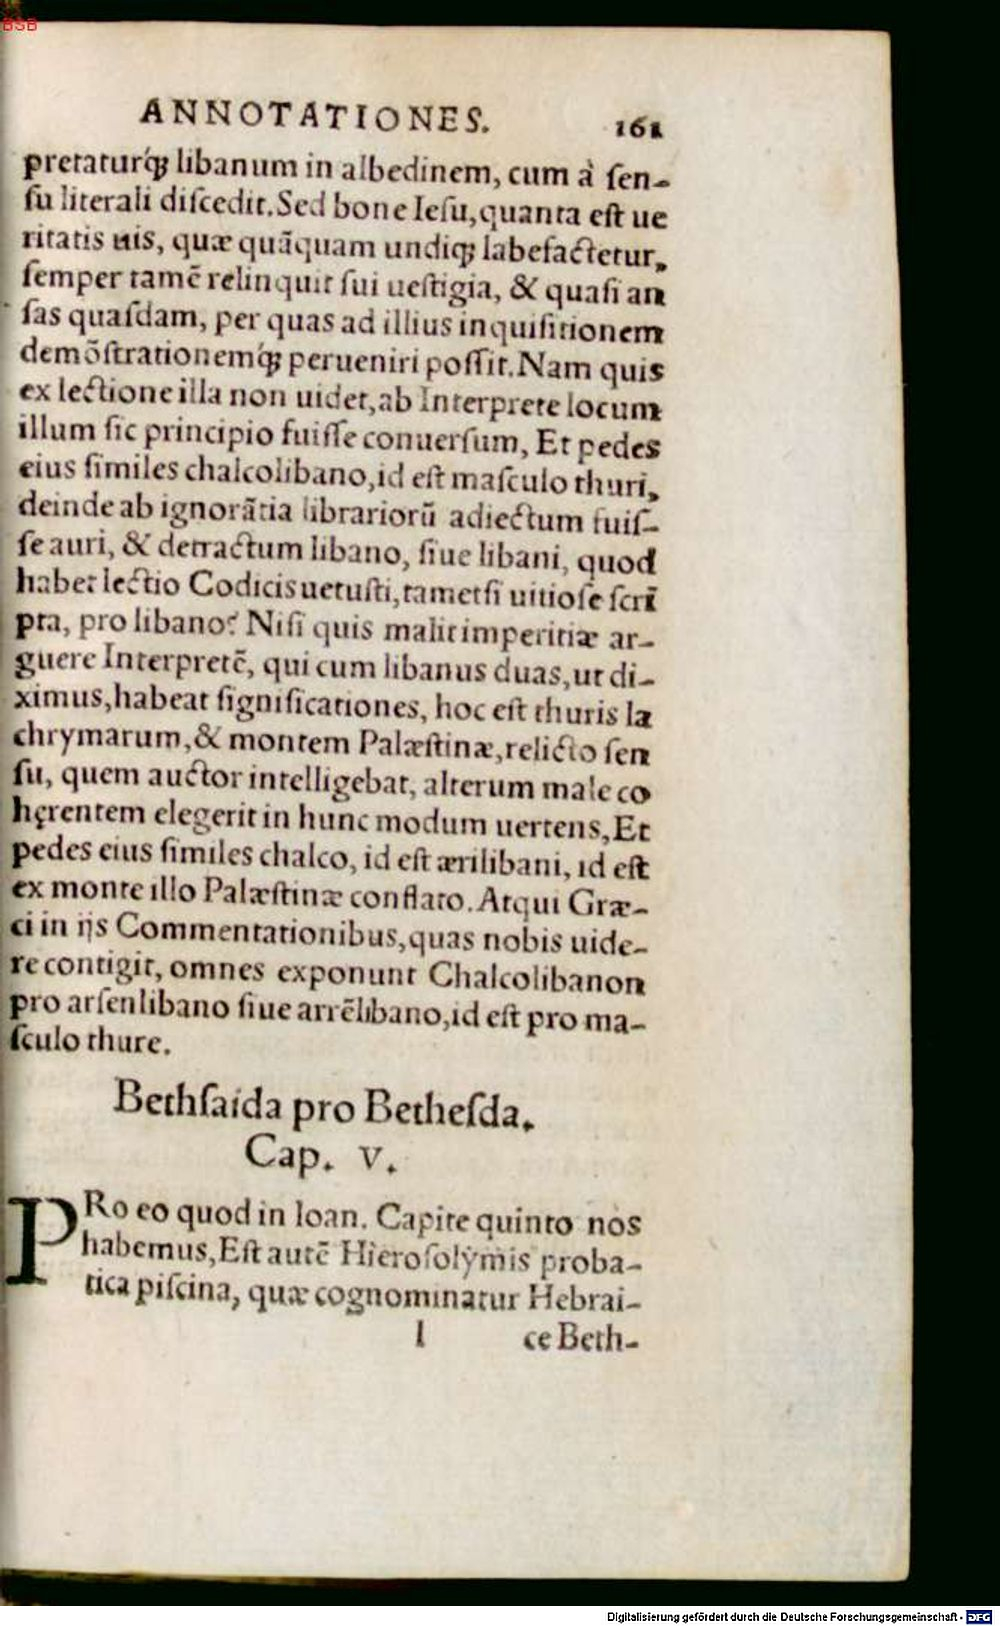 BSB
ANNOTATIONES. 161
pretaturq́ꝫ libanum in albedinem, cum à ſen-
ſu literali diſcedit. Sed bone Ieſu, quanta eſt ue
ritatis uis, quæ quāquam undiqꝫ labefactetur,
ſemper tamē relinquit ſui ueſtigia, & quaſi an
ſas quaſdam, per quas ad illius inquiſitionem
demōſtrationemq́ꝫ perueniri poſſit. Nam quis
ex lectione illa non uidet, ab Interprete locum
illum ſic principio fuiſſe conuerſum, Et pedes
eius ſimiles chalcolibano, id eſt maſculo thuri,
deinde ab ignorātia librariorū adiectum fuiſ-
ſe auri, & detractum libano, ſiue libani, quod
habet lectio Codicis uetuſti, tametſi uitioſe ſcrī
pta, pro libano? Niſi quis malit imperitiæ ar-
guere Interpretē, qui cum libanus duas, ut di-
ximus, habeat ſignificationes, hoc eſt thuris la
chrymarum, & montem Palæſtinæ, relicto ſen
ſu, quem auctor intelligebat, alterum male co
hęrentem elegerit in hunc modum uertens, Et
pedes eius ſimiles chalco, id eſt æri libani, id eſt
ex monte illo Palæſtinæ conflato. Atqui Græ-
ci in ijs Commentationibus, quas nobis uide-
re contigit, omnes exponunt Chalcolibanon
pro arſenlibano ſiue arrēlibano, id eſt pro ma-
ſculo thure.
Bethſaida pro Betheſda.
Cap. V.
PRo eo quod in Ioan. Capite quinto nos
habemus, Eſt autē Hieroſolymis proba-
tica piſcina, quæ cognominatur Hebrai-
l ce Beth-
Digitalisierung gefördert durch die Deutsche Forschungsgemeinschaft - DFG